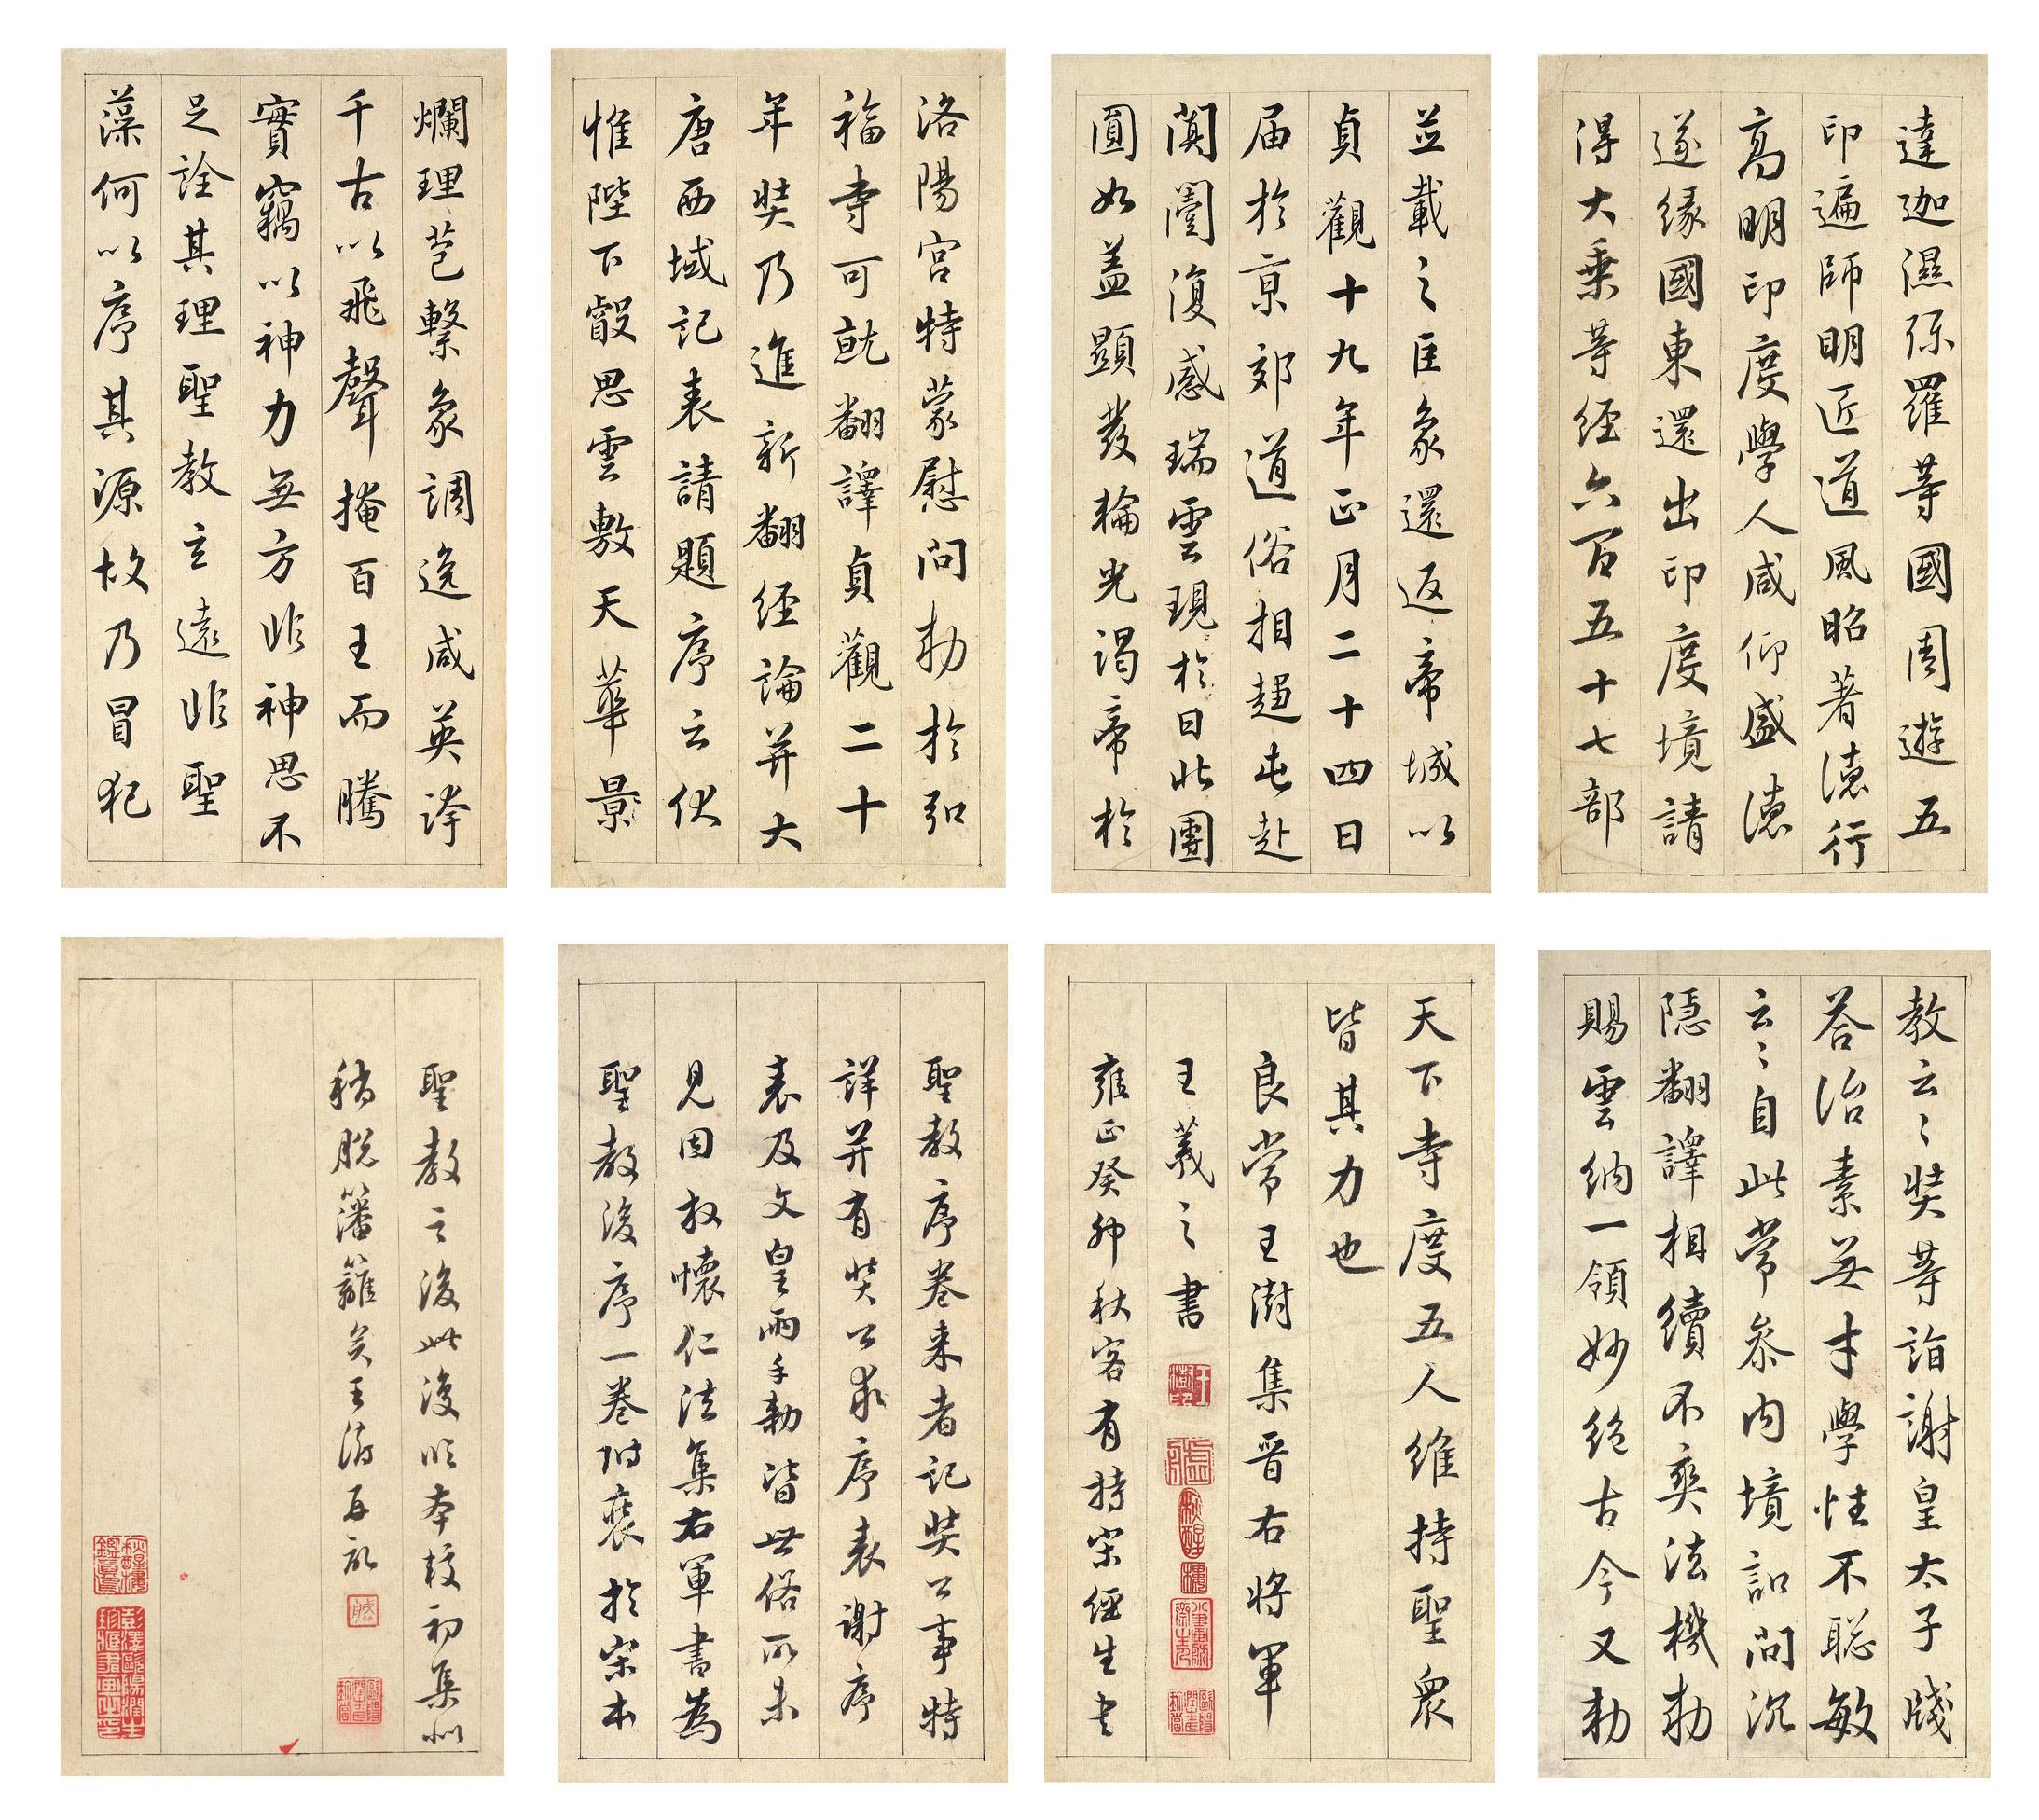 達迦濕弥羅等國周遊五
印遍師明匠道風昭著德行
高明印度學人咸仰盛德
遂緣國東還出印度境請
得大乘等経六百五十七部
並載之巨象還返帝城以
貞觀十九年正月二十四日
届於京郊道俗相趍屯赴
闐闉復感瑞雲現於日北團
圓如盖顯發輪光謁帝於
洛陽宮特蒙慰問勅於弘
福寺可就翻譯貞觀二十
年奘乃進新翻経論并大
唐西域記表請題序云伏
惟陛下叡思雲敷天華景
爛理苞繫象調逸咸英跨
千古以飛聲掩百王而騰
實竊以神力無方非神思不
足詮其理聖教玄遠非聖
藻何以序其源故乃冒犯
教云〻奘等詣謝皇太子牋
荅治素無才學性不聡敏
云〻自此常叅内境詔問沉
隱翻譯相續不爽法機勅
賜雲納一領妙絶古今又勅
天下寺度五人維持聖衆
皆其力也
良常王澍集晋右将軍
王羲之書
雍正癸卯秋客有持宋經生书
聖教序卷来者記奘公事特
詳并有奘公求序表謝序
表及文皇兩手勅皆世俗所未
見因放懷仁法集右軍書為
聖教後序一卷附裝於宋本
聖教之後此後臨本較初集似
稍脱籓籬矣王澍再記